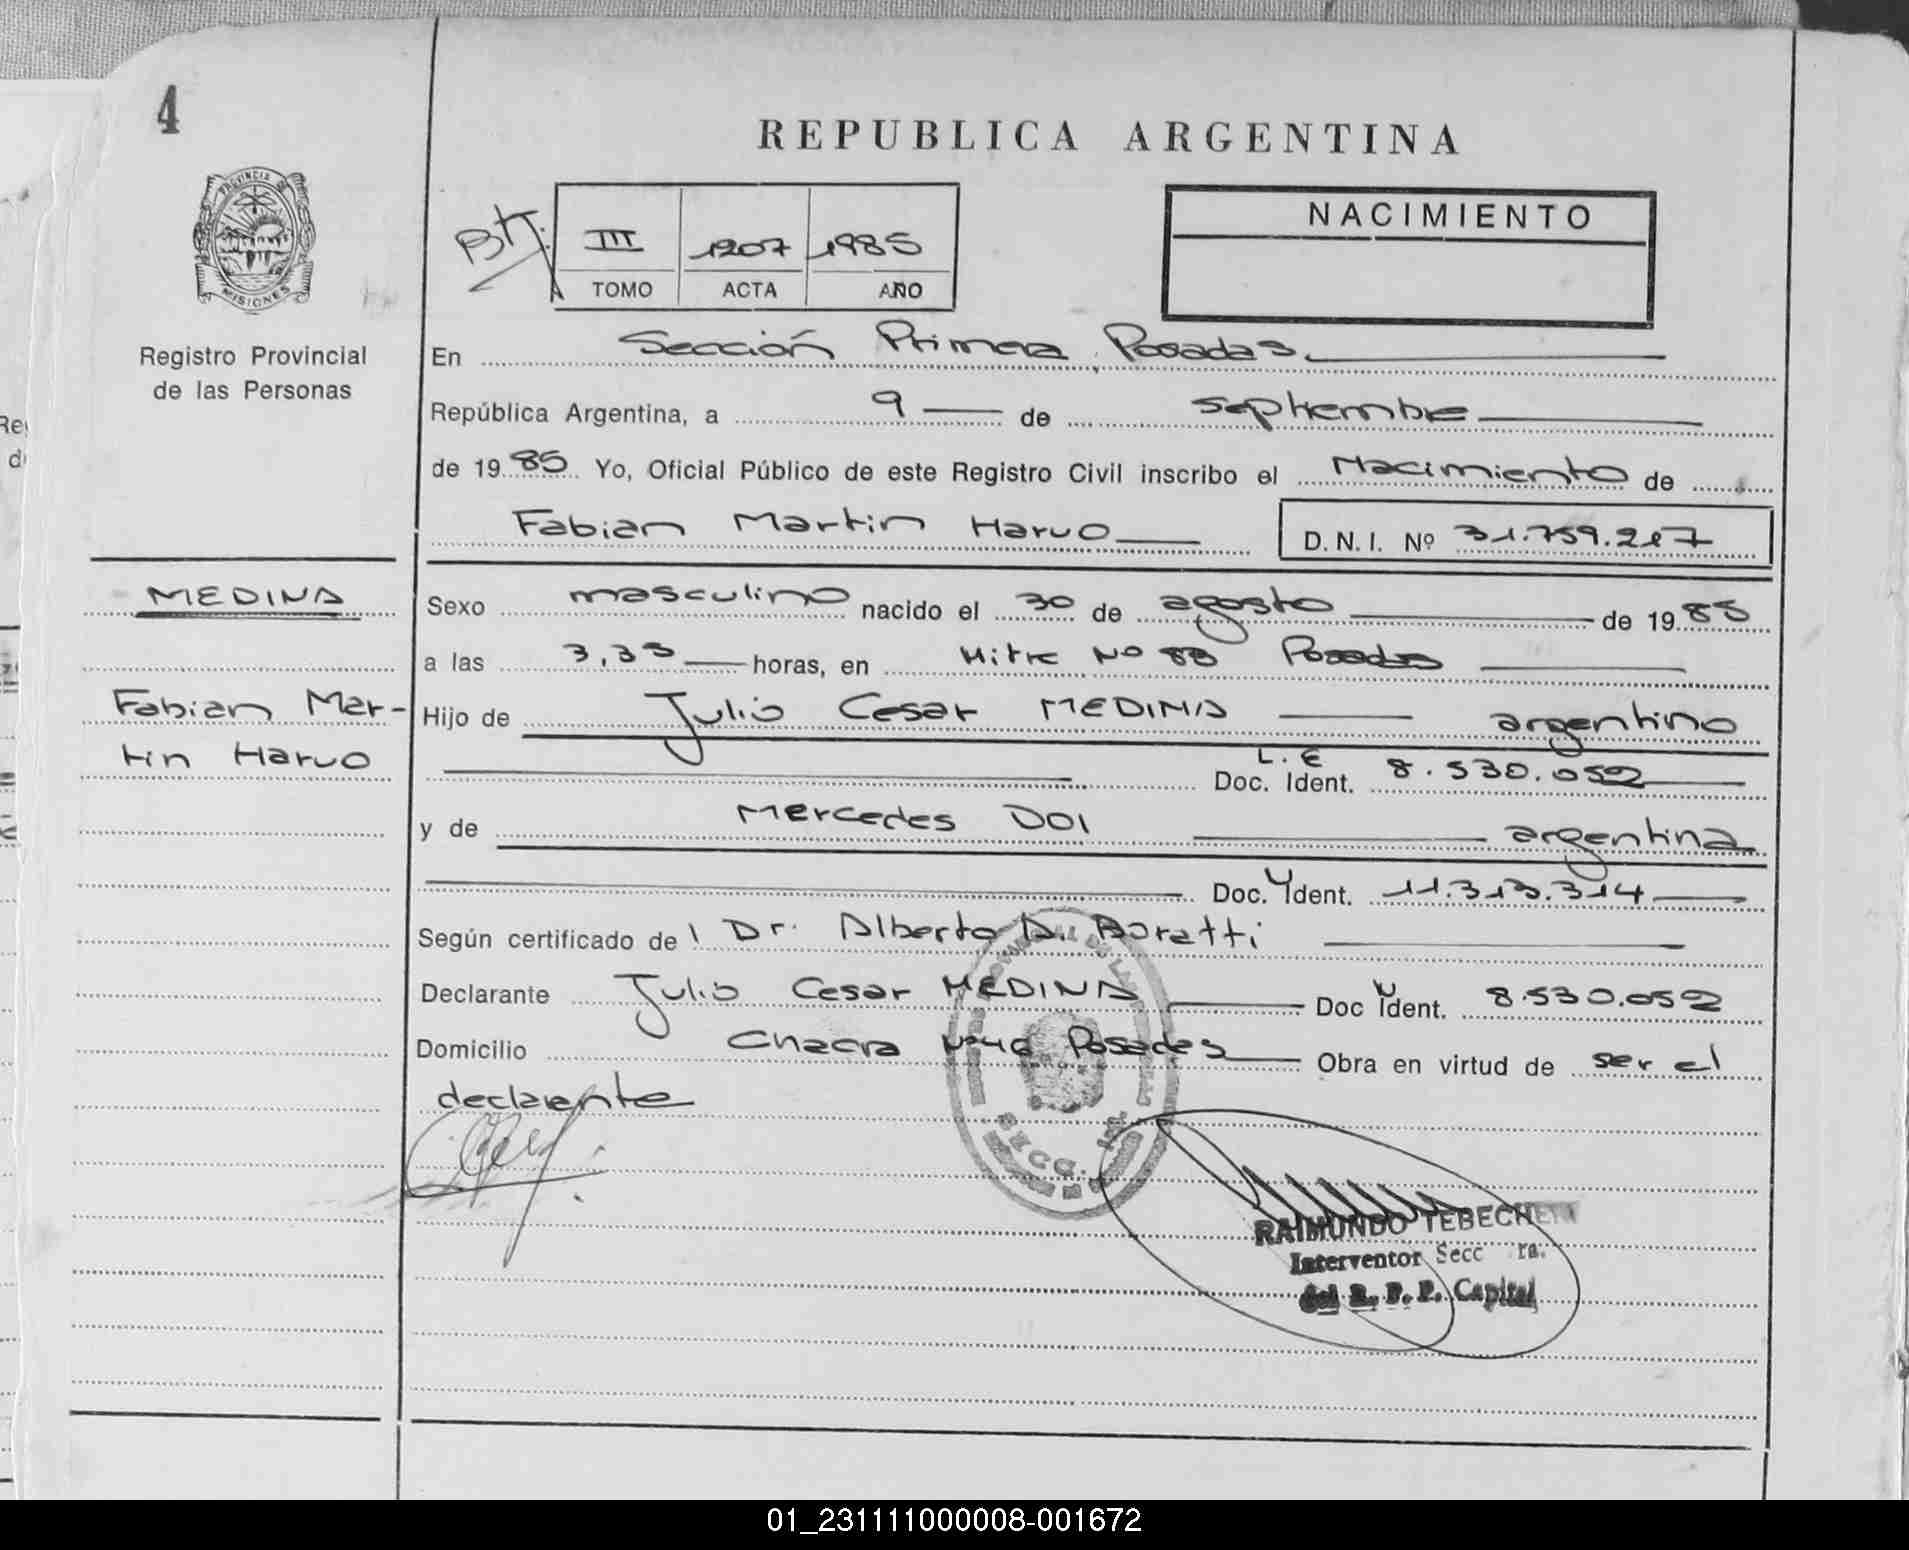 4
REPUBLICA ARGENTINA
PROVINCIA DE
MISIONES
III 1207 1985
TOMO ACTA AÑO
NACIMIENTO
Registro Provincial
de las Personas
En Sección Primera Posadas
República Argentina, a 9 de septiembre
de 1985 Yo, Oficial Público de este Registro Civil inscribo el Nacimiento de
Fabian Martin Haruo D.N.I. Nº 31.759.217
MEDINA
Fabian Mar-
tin Haruo
Sexo masculino nacido el 30 de agosto de 1985
a las 3,35 horas, en Mitre Nº 83 Posadas
Hijo de Julio Cesar MEDINA argentino
L.E
Doc. Ident. 8.530.052
y de Mercedes DOI argentina
Doc. Ident. 11.313.314
Según certificado de Dr. Alberto D. Boratti
Declarante Julio Cesar MEDINA Doc Ident. 8.530.052
Domicilio Chacra Nº 46 Posadas Obra en virtud de ser el
declarante
SECC. 1ra.
RAIMUNDO TEBECHERI
Interventor Secc ra.
del R. P. P. Capital
01_231111000008-001672